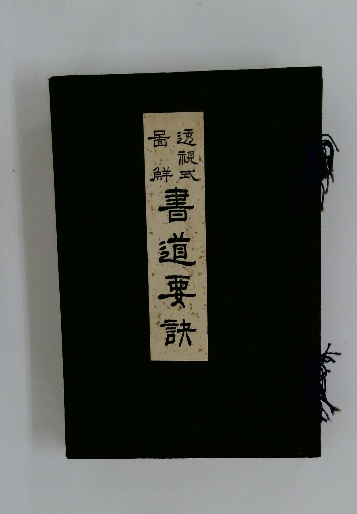 透視式
啚解
書道要訣